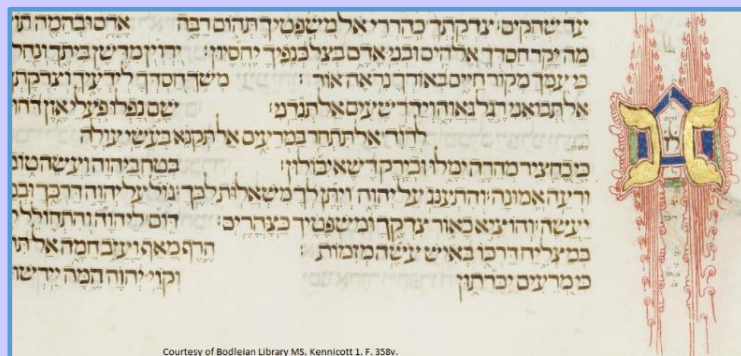 עד שחקים׃ צדקתך כהררי אל משפטיך תהום רבה אדם ובהמה
מה יקר חסדך אלהים ובני אדם בצל כנפיך יחסיון׃ ירוין מדשן ביתך ונחל
כי עמך מקור חיים באורך נראה אור׃ משך חסדך לידעיך
אל תבואני רגל גאוה ויד רשעים אל תנדני׃ שם נפלו פעלי און
לדוד אל תתחר במרעים אל תקנא בעשי עולה
כי כחציר מהרה ימלו וכירק דשא יבולון׃ בטח ביהוה ועשה טוב
ורעה אמונה׃ והתענג על יהוה ויתן לך משאלות לבך׃ גול על יהוה דרכך
יעשה׃ והוציא כאור צדקך ומשפטיך כצהרים׃ דום ליהוה והתחולל
במצליח דרכו באיש עשה מזמות׃ הרף מאף ועזב חמה אל
כי מרעים יכרתון וקוי יהוה המה
Courtesy of Bodleian Library MS. Kennicott 1. F. 358v.